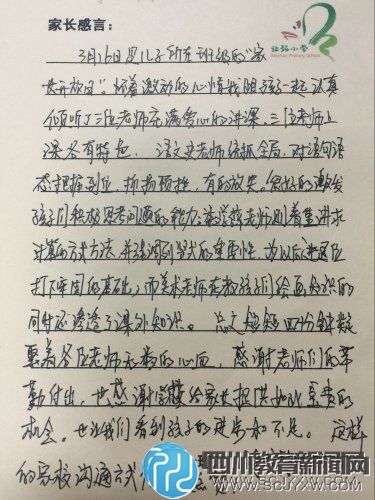 家长感言：
北站小学
Beizhan Primary school
3月16日是儿子所在班级的“家
长开放日”。怀着激动的心情我跟孩子一起认真
倾听了三位老师充满爱心的讲课。三位老师上
课各有特色，语文史老师统抓全局，对语句语
态把握到位，抑扬顿挫，有的放矢。很好的激发
孩子们积极思考问题的能力；数学老师则着重讲求
计算的方式方法，并强调列竖式的重要性，为以后
打下牢固的基础；而美术老师在教孩子们绘画知识的
同时还渗透了课外知识。总之短短四十分钟凝
聚着各位老师无数的心血，感谢老师们的辛
勤付出，也感谢学校给家长提供如此宝贵的
机会。也让我们看到孩子的进步和不足。这样
的家校沟通方式
四川教育新闻网
WWW.SCJYXW.COM